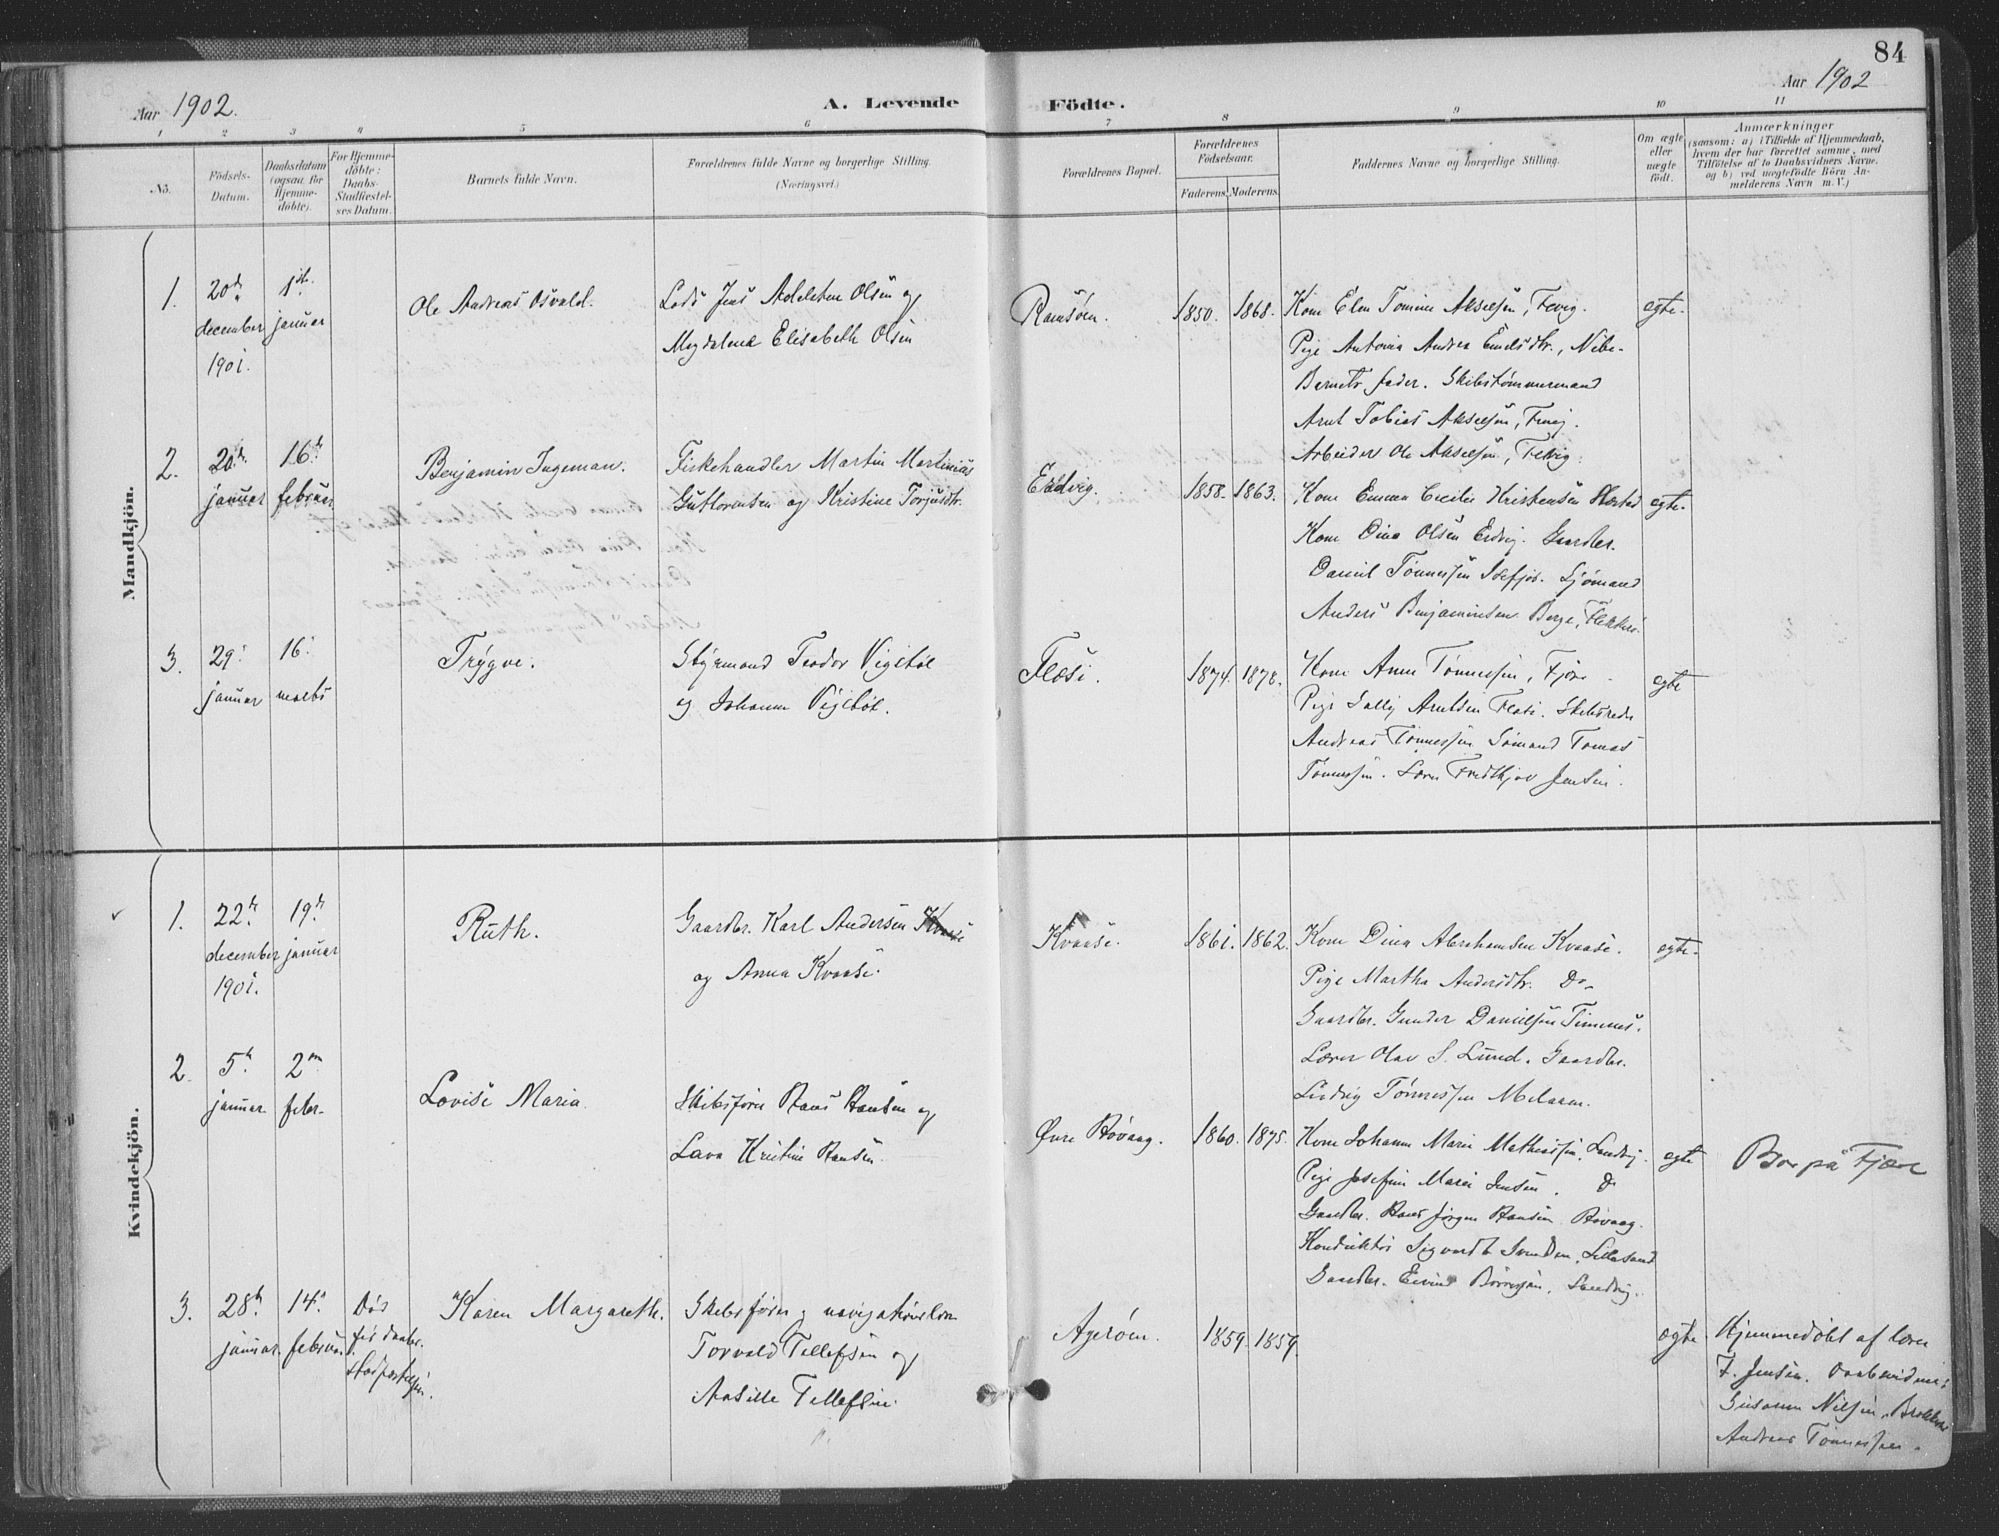 84
Aar 1902.
A. Levende
Födte.
Aar 1902
1 2 3 4 5 6 7 8 9 10 11
No.
Födsels-Datum.
Daabsdatum (ogsaa for Hjemme-döbte).
For Hjemme-döbte: Daabs-Stadfæstel-ses Datum.
Barnets fulde Navn.
Forældrenes fulde Navne og borgerlige Stilling.
(Næringsvei.)
Forældrenes Bopæl.
Forældrenes Födselsaar.
Faderens. Moderens.
Faddernes Navne og borgerlige Stilling.
Om ægte eller uægte födt.
Anmærkninger
(saasom: a) i Tilfælde af Hjemmedaab,
hvem der har forrettet samme, med
Tilföielse af to Daabsvidners Navne.
og b) ved uægtefödte Börn An-
melderens Navn m. V.)
Mandkjön.
1.
20de december 1901.
1ste januar
Ole Andreas Osvald.
Lods Jens Adelsten Olsen og
Magdalena Elisabeth Olsen
Ramsøen.
1850. 1868.
Kone Elen Tomine Akselsen, Fevig.
Pige Antonia Andrea Emilsdtr., Nibe.
Barnets fader. Skibstømmermand
Arnt Tobias Akselsen, Fevig.
Arbeider Ole Akselsen, Fevig.
egte.
2.
20de januar
16de februar
Benjamin Ingeman.
Fiskehandler Martin Martinius
Guttormsen og Kristine Torjusdtr.
Eidvig.
1858. 1863.
Kone Emma Cecilie Kristensen
Kone Dina Olsen Eidvig. Gaardbr.
Daniel Tønnessen Sjømand
Anders Benjaminsen Berge,
egte.
3.
29. januar
16. marts
Trygve.
Styrmand Teodor Vigstøl
og Johanne Vigstøl.
Flosi.
1874. 1878.
Kone Anne Tønnessen, Fjære
Pige Sally Arntsen Flosi. Skibsreder
Andreas Tønnessen Sømand Tomas
Tønnessen. Lærer Fredthjov Jensen.
egte
Kvindekjön.
1.
22de december 1901.
19de januar
Ruth.
Gaardbr. Karl Andersen Kvaase
og Anna Kvaase.
Kvaase.
1861. 1862.
Kone Dina Abrahamsen Kvaase.
Pige Martha Andersdtr. Do
Gaardbr. Gunder Danielsen Timnes.
Lærer Olav S. Lund. Gaardbr.
Ludvig Tønnessen
egte.
2.
5te januar
2den febr.
Lovise Maria.
Skibsfører Hans Hansen og
Lava Kristine Hansen.
Øvre Høvaag.
1860. 1875.
Kone Johanne Marie Mathiassen, Landvig.
Pige Josefine Marie Jensen. Do
Gaardbr. Hans Jørgen Hansen Høvaag.
Konduktør Sigvardt Svendsen, Lillesand
Gaardbr. Eivind Børresen, Landvig.
egte
Bor på Fjære
3.
28de januar.
14de februar
Død før daabs-stadfæstelsen.
Karen Margareth.
Skibsfører og navigationslærer
Torvald Tellefsen og
Aasille Tellefsen.
Agerøen.
1859. 1859.
egte
Hjemmedøbt af lærer
F. Jensen. Daabsvidner:
Susanne Nilsen, Brekkestø
Andreas Tønnessen.